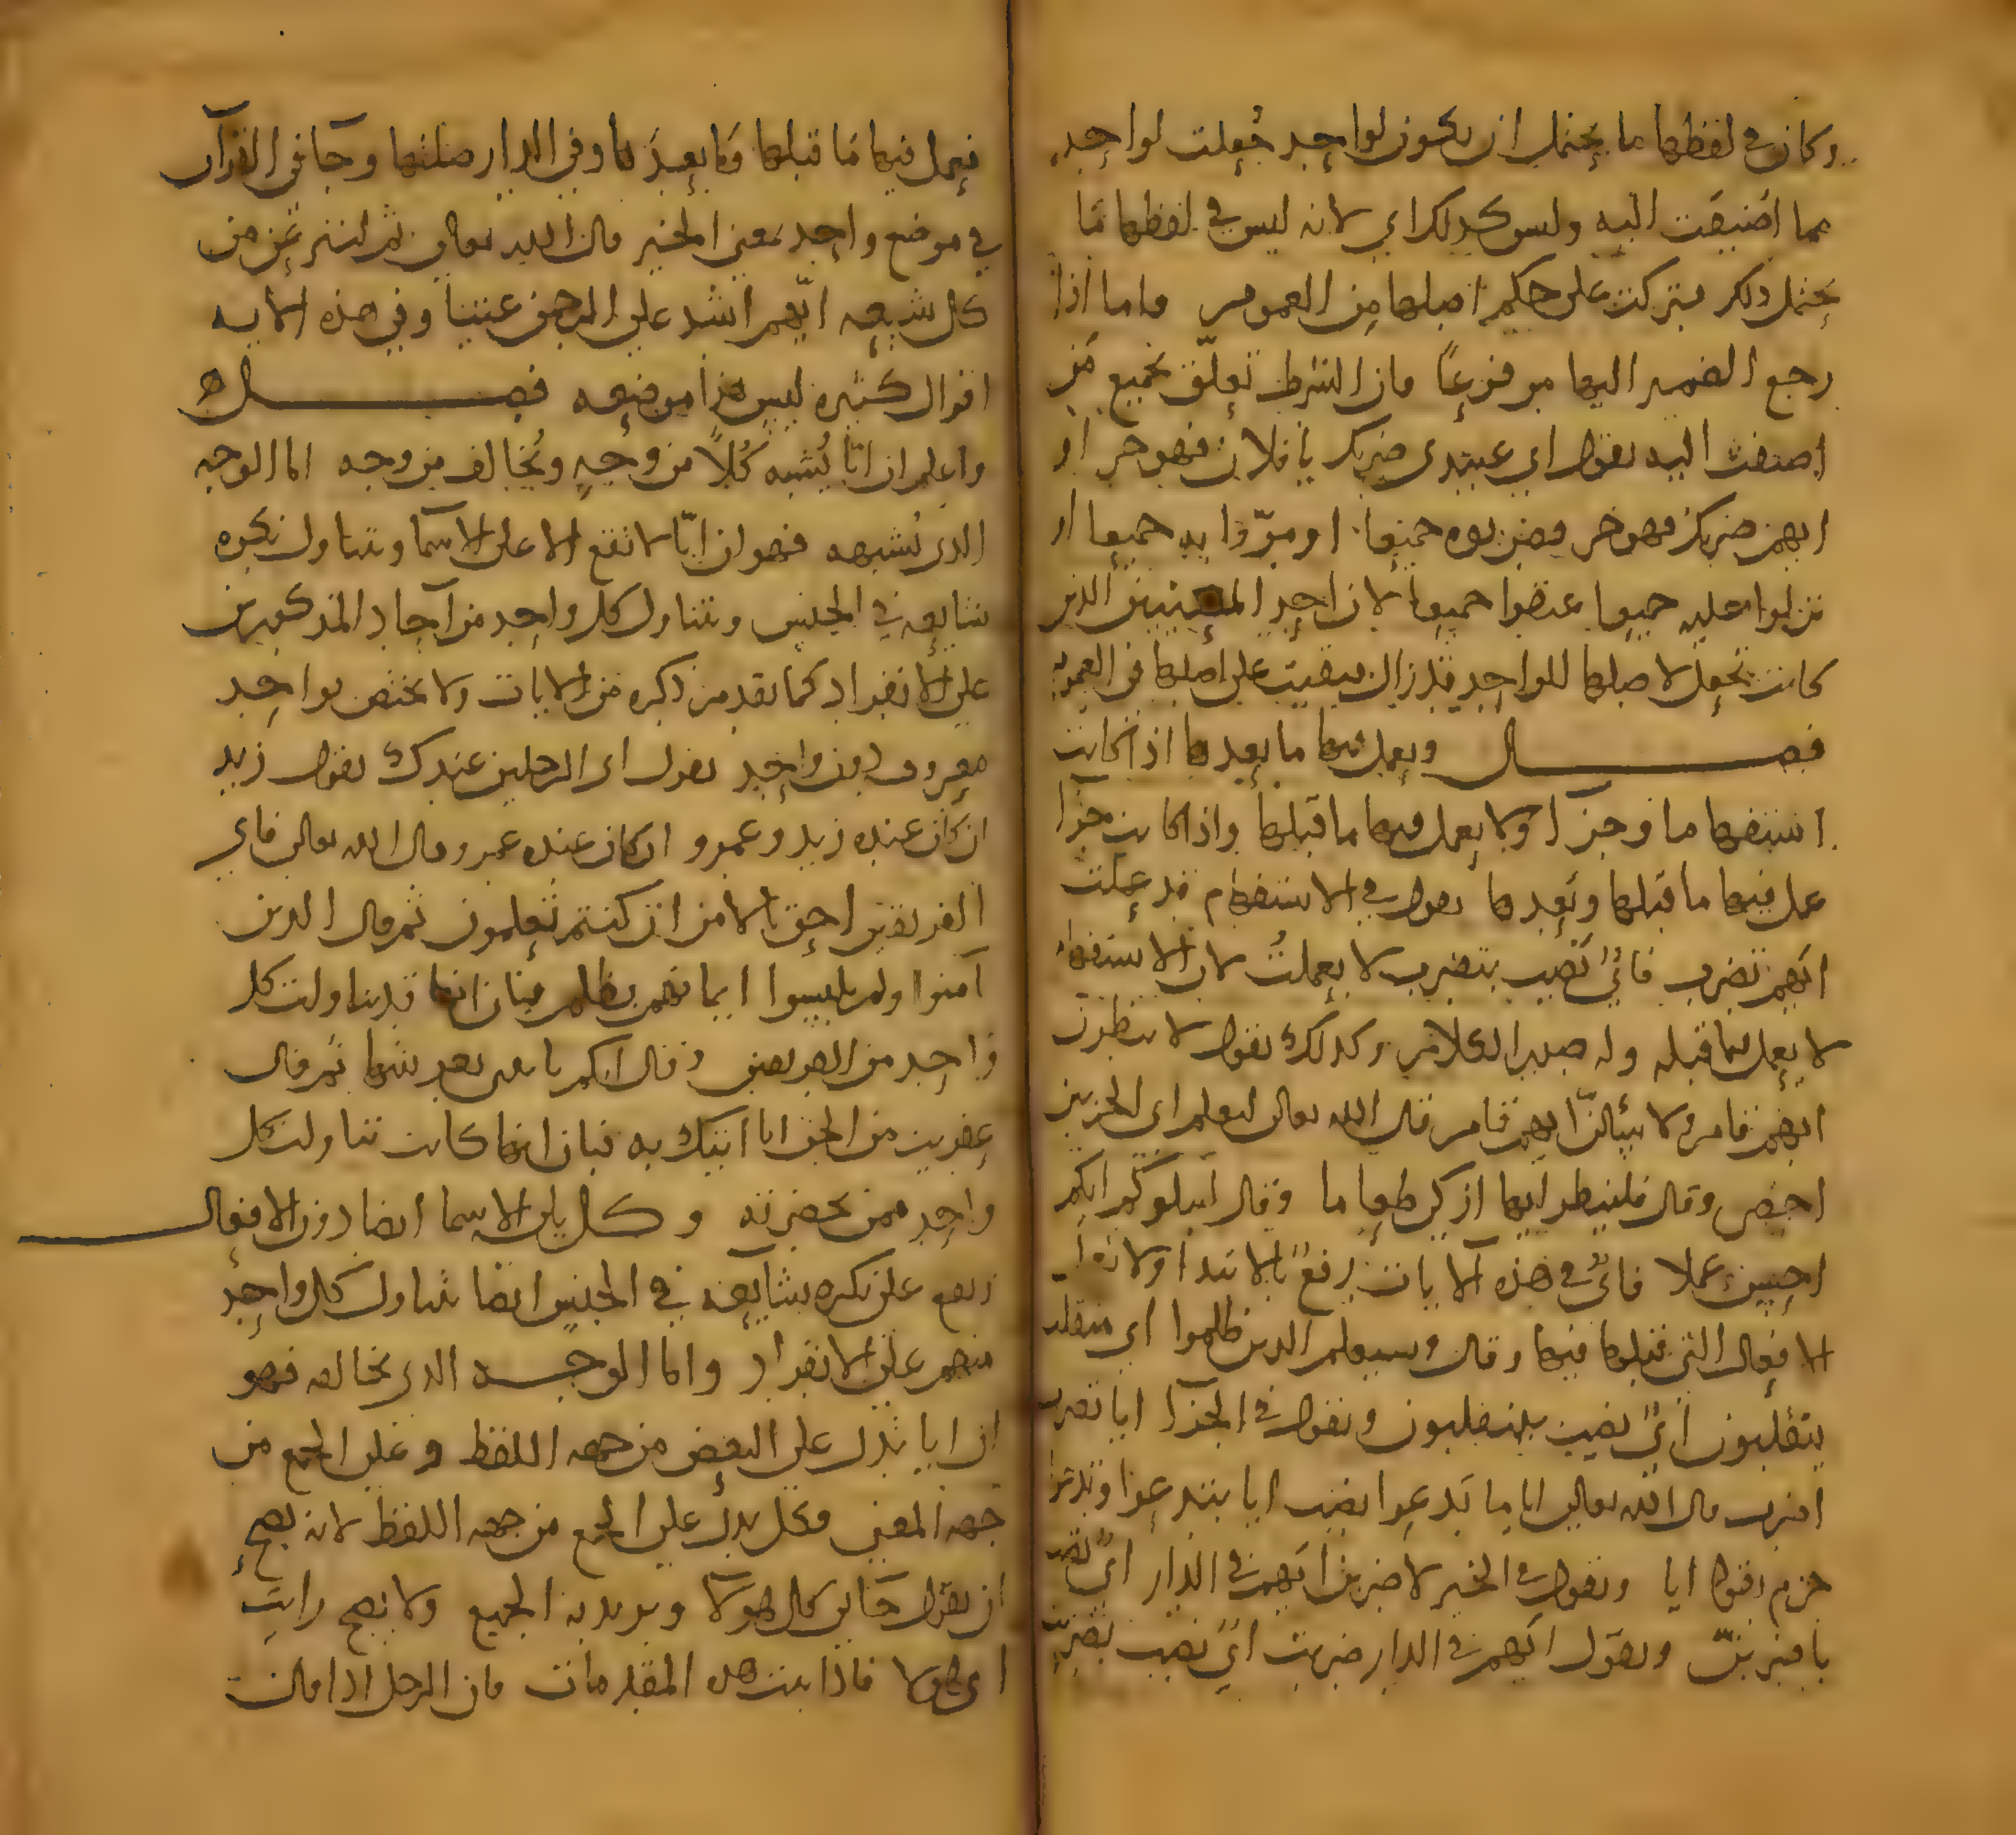 وكان في لفظها ما يحتمل ان يكون لواحد جُعلت لواحد
مما اضيفت اليه وليس كذلك اي لانه ليس في لفظها ما
يحتمل ذلك فتركت على حكم اصلها من العموم واما اذا
رجع الضمير اليها مرفوعًا فان الشرط تعلّق بجميع من
اضفت اليه تقول اي عبيدي ضربك يا فلان فهو حر او
ايهم ضربك فهو حر فضربوه جميعا او مرّوا به جميعا او
نزلوا عليه جميعا عتقوا جميعا لان احد المعنيين الذين
كانت تجعل لاصلها للواحد قد زال فبقيت على اصلها في العموم
فصـــل ويعمل فيها ما بعدها اذا كانت
استفهاما وجزآ ولا يعمل فيها ما قبلها واذا كانت خبرا
عمل فيها ما قبلها وبعدها تقول في الاستفهام قد علمت
ايهم تضرب فاي نصب بتضرب لا بعلمتُ لان الاستفهام
لا يعمل فيما قبله وله صدر الكلام وكذلك تقول لانظرن
ايهم قام ولاسألنّ ايهم قام قال الله تعالى لنعلم اي الحزبين
احصى وقال فلينظر ايها ازكى طعاما وقال ليبلوكم ايكم
احسن عملا فايٌ في هذه الآيات رفعٌ بالابتدا ولا تؤثر
الافعال التي قبلها فيها وقال وسيعلم الذين ظلموا اي منقلب
ينقلبون ايَّ نصب بينقلبون وتقول في الجزآ ايا تضرب
اضرب قال الله تعالى ايا ما تدعوا نصب ايا بتدعوا وتدعوا
جزم بقوله ايا وتقول في الخبر لاضربن ايهم في الدار ايَّ نصب
باضربنّ وتقول ايهم في الدار ضربت ايَّ نصب بضربت
فعمل فيها ما قبلها وما بعدها وفي الدار صلتها وجآ في القرآن
في موضع واحد بمعنى الخبر قال الله تعالى ثم لننزعن من
كل شيعة ايّهم اشد على الرحمن عتيا وفي هذه الاية
اقوال كثيرة ليس هذا موضعه فصـــل
واعلم ان ايّا يُشبه كُلاً من وجهٍ ويُخالف من وجه اما الوجه
الذي يُشبهه فهو ان ايّا لا تقع الا على الاسما وتتناول نكرة
شايعة في الجنس وتتناول كل واحد من آحاد المذكورين
على الانفراد كما تقدم من ذكره من الايات ولا يختص بواحد
معروف دون واحد تقول اي الرجلين عندك تقول زيد
ان كان عنده زيد وعمرو ان كان عنده عمرو وقال الله تعالى فاي
الفريقين احق بالامن ان كنتم تعلمون ثم قال الذين
آمنوا ولم يلبسوا ايمانهم بظلم فبان انها قد تناولت كل
واحد من الفريقين وقال ايكم ياتيني بعرشها ثم قال
عفريت من الجن انا اتيك به فبان انها كانت تناولت كل
واحد ممن بحضرته وكل يلي الاسما ايضا دون الافعال
وتقع على نكرة شايعة في الجنس ايضا تتناول كل واحد
منهم على الانفراد واما الوجـــه الذي تخالفه فهو
ان ايا تدل على البعض من جهة اللفظ وعلى الجمع من
جهة المعنى وكل يدل على الجمع من جهة اللفظ لانه يصح
ان تقول جآني كل هولآ وتريد به الجميع ولا يصح رايت
اي هولا فاذا ثبتت هذه المقدمات فان الرجل اذا قالت